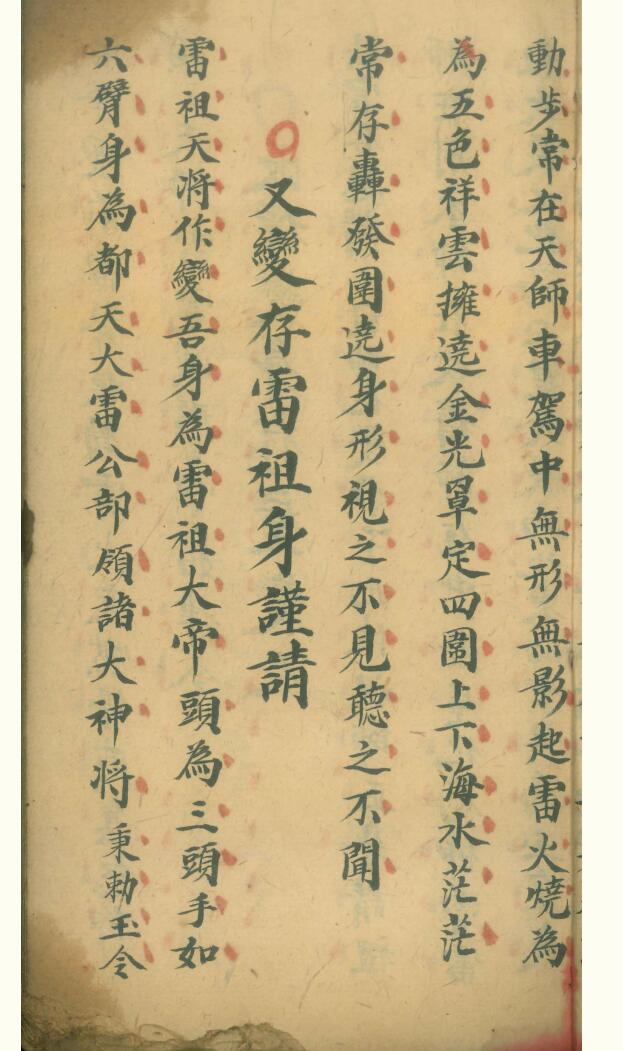 動步常在天師車駕中無形無影起雷火燒為
為五色祥雲擁遶金光罩定四圍上下海水茫茫
常存轟發圍遶身形視之不見聽之不聞
又變存雷祖身謹請
雷祖天將作變吾身為雷祖大帝頭為三頭手如
六臂身為都天大雷公部領諸大神將秉勅玉令